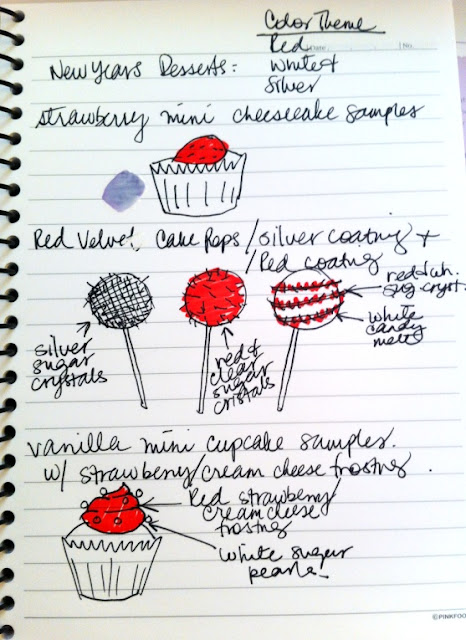 Color Theme
Red
Date
No.
New Years Desserts:
White &
Silver
strawberry mini cheesecake samples
Red Velvet Cake Pops / silver coating +
/ Red coating
red & wh.
sug. cryst.
white
candy
melt
silver
sugar
crystals
red &
clear
sugar
cristals
vanilla mini cupcake samples.
w/ strawberry/cream cheese frosting.
Red strawberry/
cream cheese
frosting
white sugar
pearls!
©PINKFOO